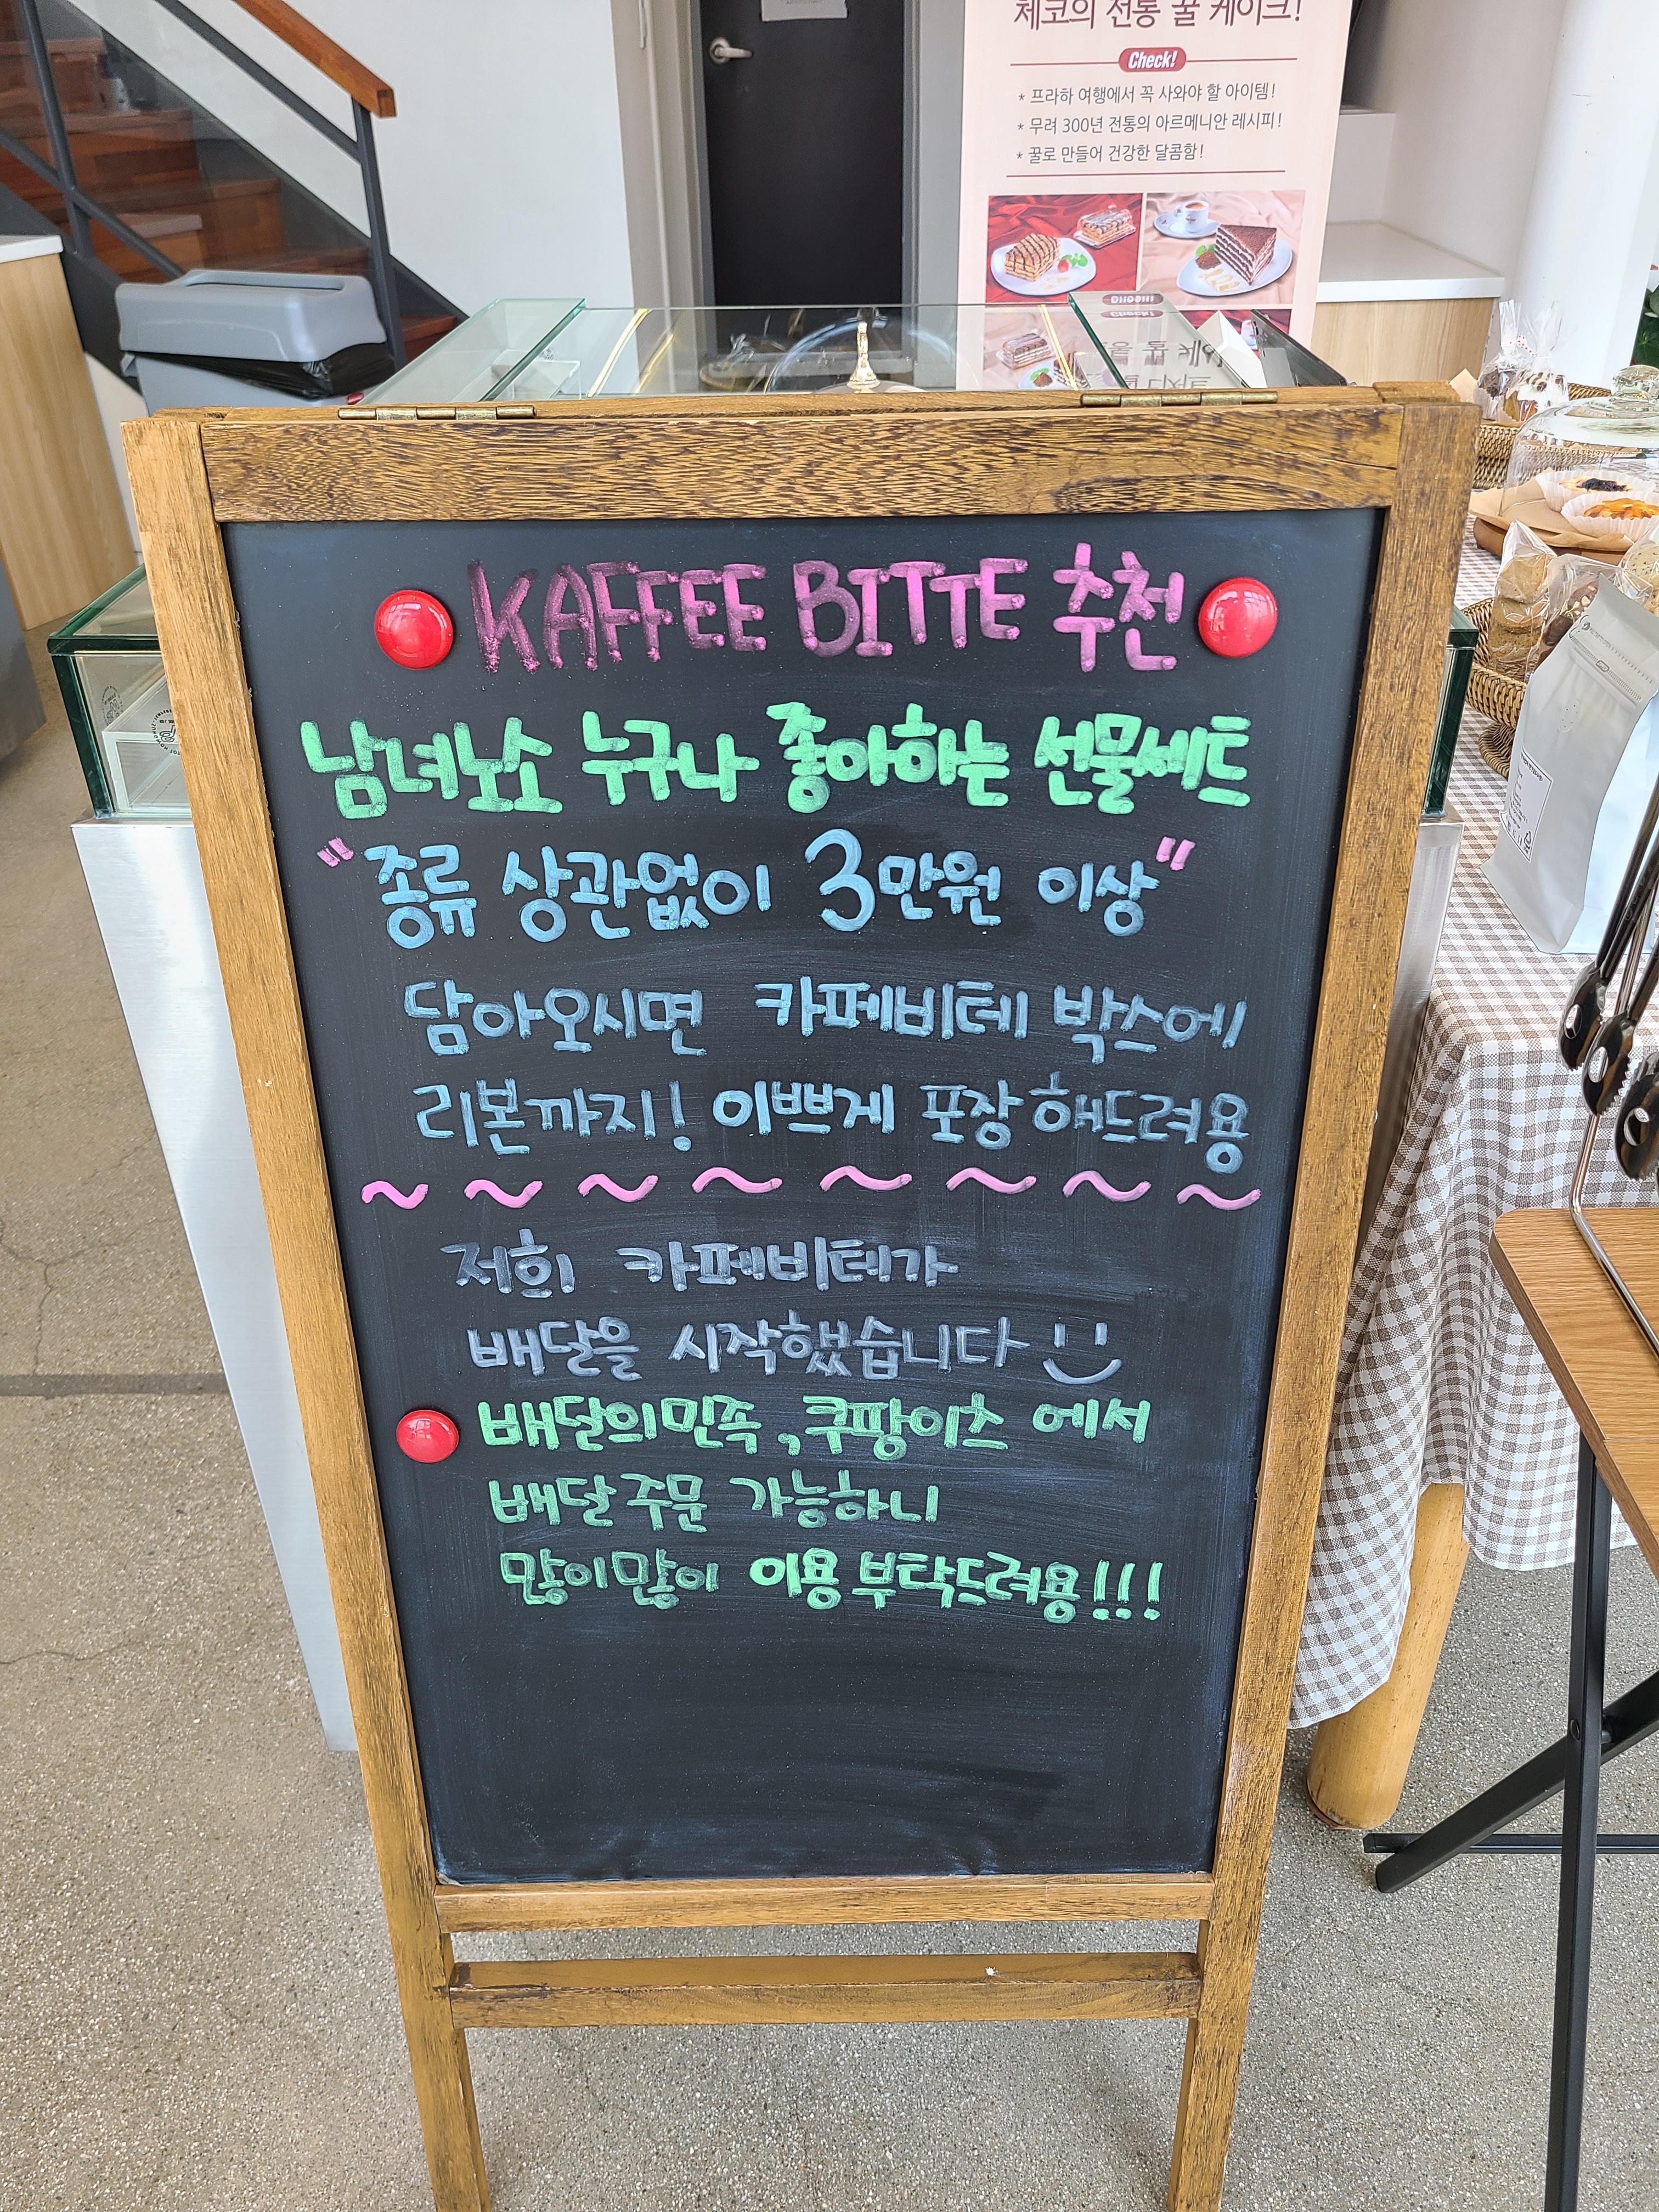 체코의 전통 꿀 케이크!
Check!
* 프라하 여행에서 꼭 사와야 할 아이템!
* 무려 300년 전통의 아르메니안 레시피!
* 꿀로 만들어 건강한 달콤함!
KAFFEE BITTE 추천
남녀노소 누구나 좋아하는 선물세트
"종류 상관없이 3만원 이상"
담아오시면 카페비테 박스에
리본까지! 이쁘게 포장해드려용
~ ~ ~ ~ ~ ~ ~ ~
저희 카페비테가
배달을 시작했습니다
배달의민족, 쿠팡이츠 에서
배달 주문 가능하니
많이많이 이용 부탁드려용!!!